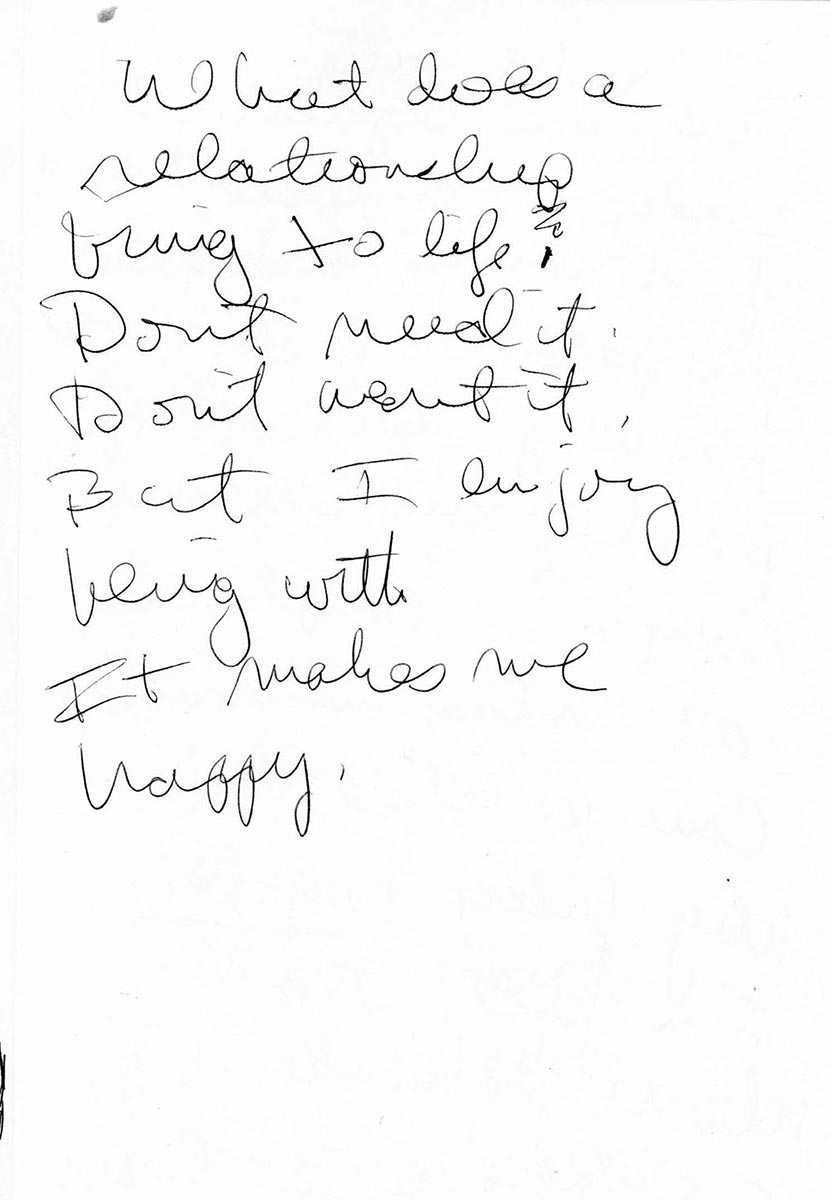 What does a
relationship
bring to life?
Don't need it.
Don't want it.
But I enjoy
being with
It makes me
happy.